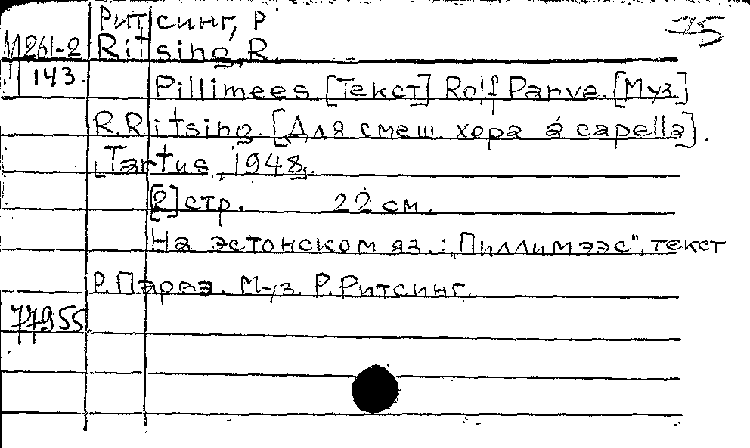 Ритсинг, Р
75
М261-2 Ritsing, R.
143
Pillimees [Текст] Rolf Parva. [Муз.]
R. Ritsing. [Для смеш. хора a capella].
Tartus, 1948.
[2] стр. 22 см.
На эстонском яз.: „Пиллимээс", текст
Р. Парва. Муз. Р. Ритсинг.
77955